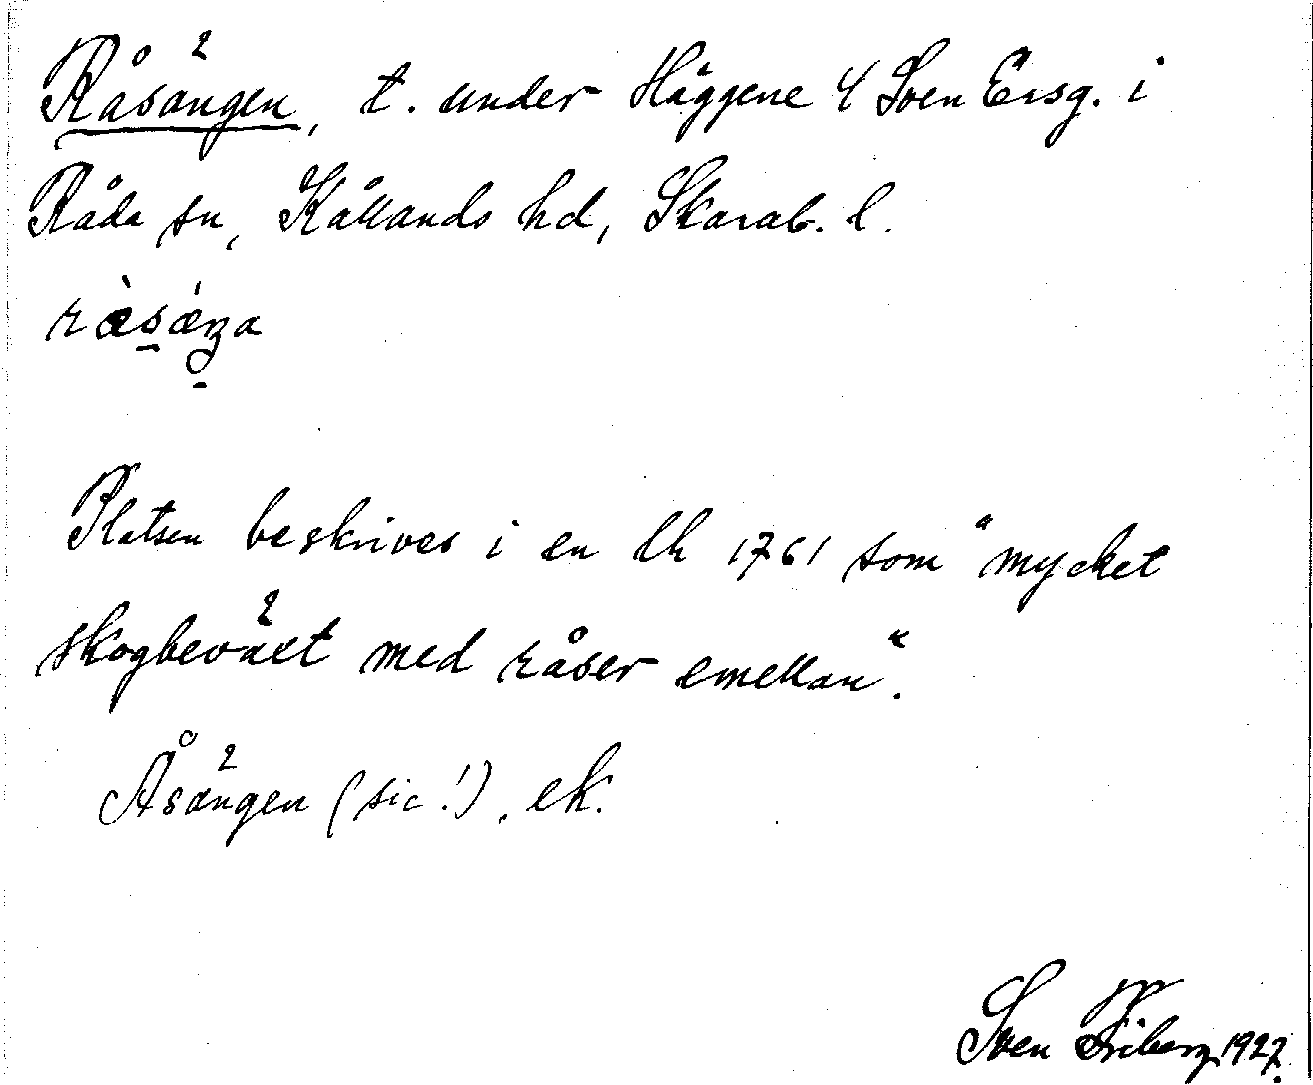 Råsängen, t. under Häggene 4 Sven Ersg. i
Råda sn, Kållands hd, Skarab. l.
Platsen beskrives i en lh 1761 som "mycket
skogbeväxt med råser emellan".
Åsängen (sic!), ek.
Sven Friberg 1927.